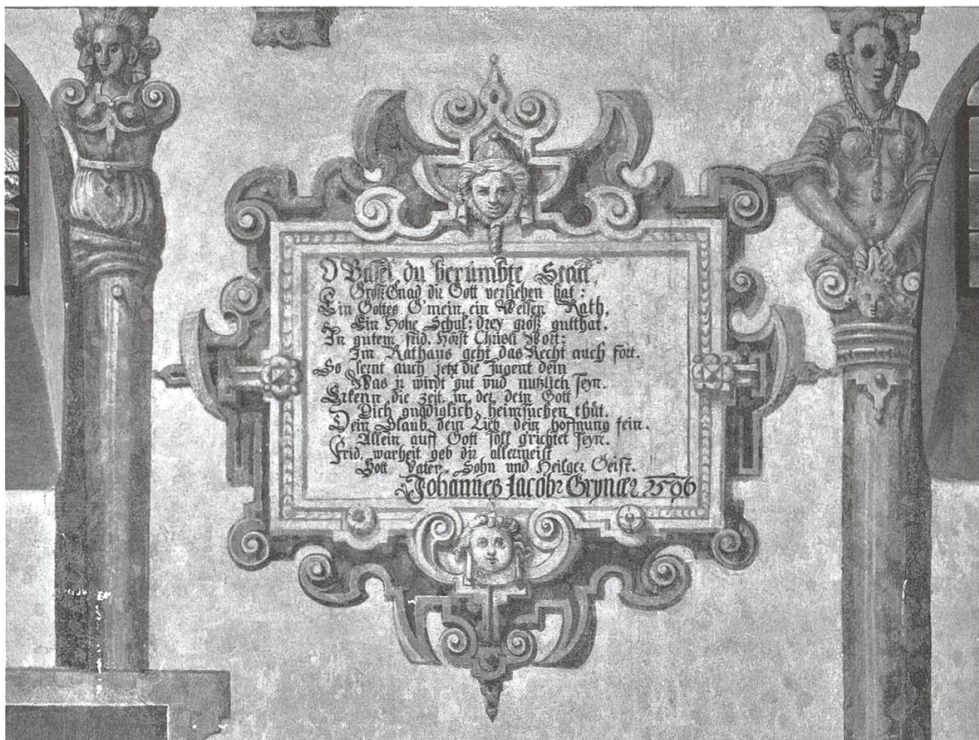 O Basel du berümbte Statt,
Groß Gnad dir Gott verliehen hat:
Ein Gottes G'mein, ein Weisen Rath,
Ein Hohe Schul: drey groß gutthat.
In gutem frid, Hörst Christi Wort:
Im Rathaus geht das Recht auch fort.
So lernt auch jetzt die Jugent dein
Was jr wirdt gut und nutzlich seyn.
Erkenn die Zeit, in der dein Gott
Dich gnädiglich heimsuchen thůt.
Dein Glaub, dein Lieb, dein hoffnung fein.
Allein auff Gott soll grichtet seyn.
Frid, warheit geb dir allermeist
Gott Vater, Sohn und Heilger Geist.
Johannes Jacobr Grynær 1596